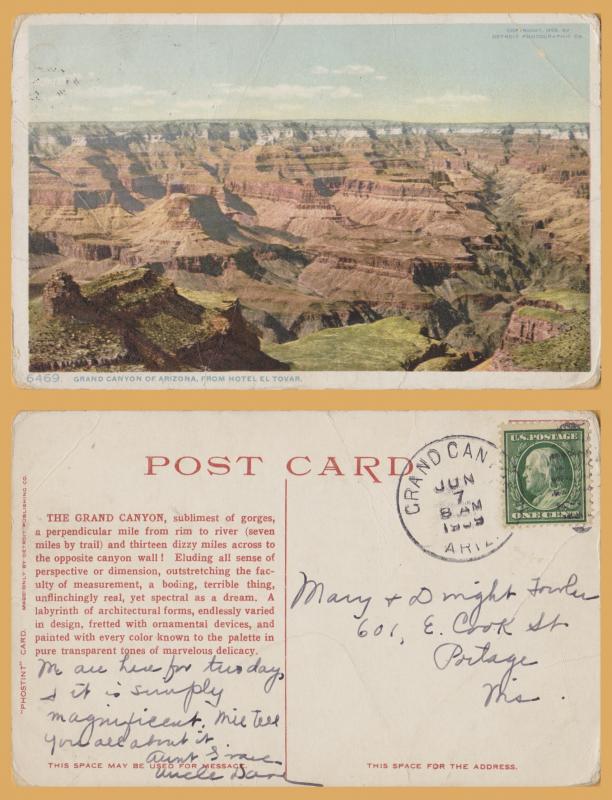 COPYRIGHT, 1902, BY
DETROIT PHOTOGRAPHIC CO.
6469. GRAND CANYON OF ARIZONA, FROM HOTEL EL TOVAR.
POST CARD
GRAND CAN
JUN
7
8 AM
1909
ARIZ.
U.S. POSTAGE
ONE CENT
THE GRAND CANYON, sublimest of gorges,
a perpendicular mile from rim to river (seven
miles by trail) and thirteen dizzy miles across to
the opposite canyon wall! Eluding all sense of
perspective or dimension, outstretching the fac-
ulty of measurement, a boding, terrible thing,
unflinchingly real, yet spectral as a dream. A
labyrinth of architectural forms, endlessly varied
in design, fretted with ornamental devices, and
painted with every color known to the palette in
pure transparent tones of marvelous delicacy.
"PHOSTINT" CARD. MADE ONLY BY DETROIT PUBLISHING CO.
We are here for two days
& it is simply
magnificent. Will tell
you all about it
Aunt Grace
Uncle Dave
Mary & Dwight Fowler
601, E. Cook St
Portage
Wis.
THIS SPACE MAY BE USED FOR MESSAGE.
THIS SPACE FOR THE ADDRESS.